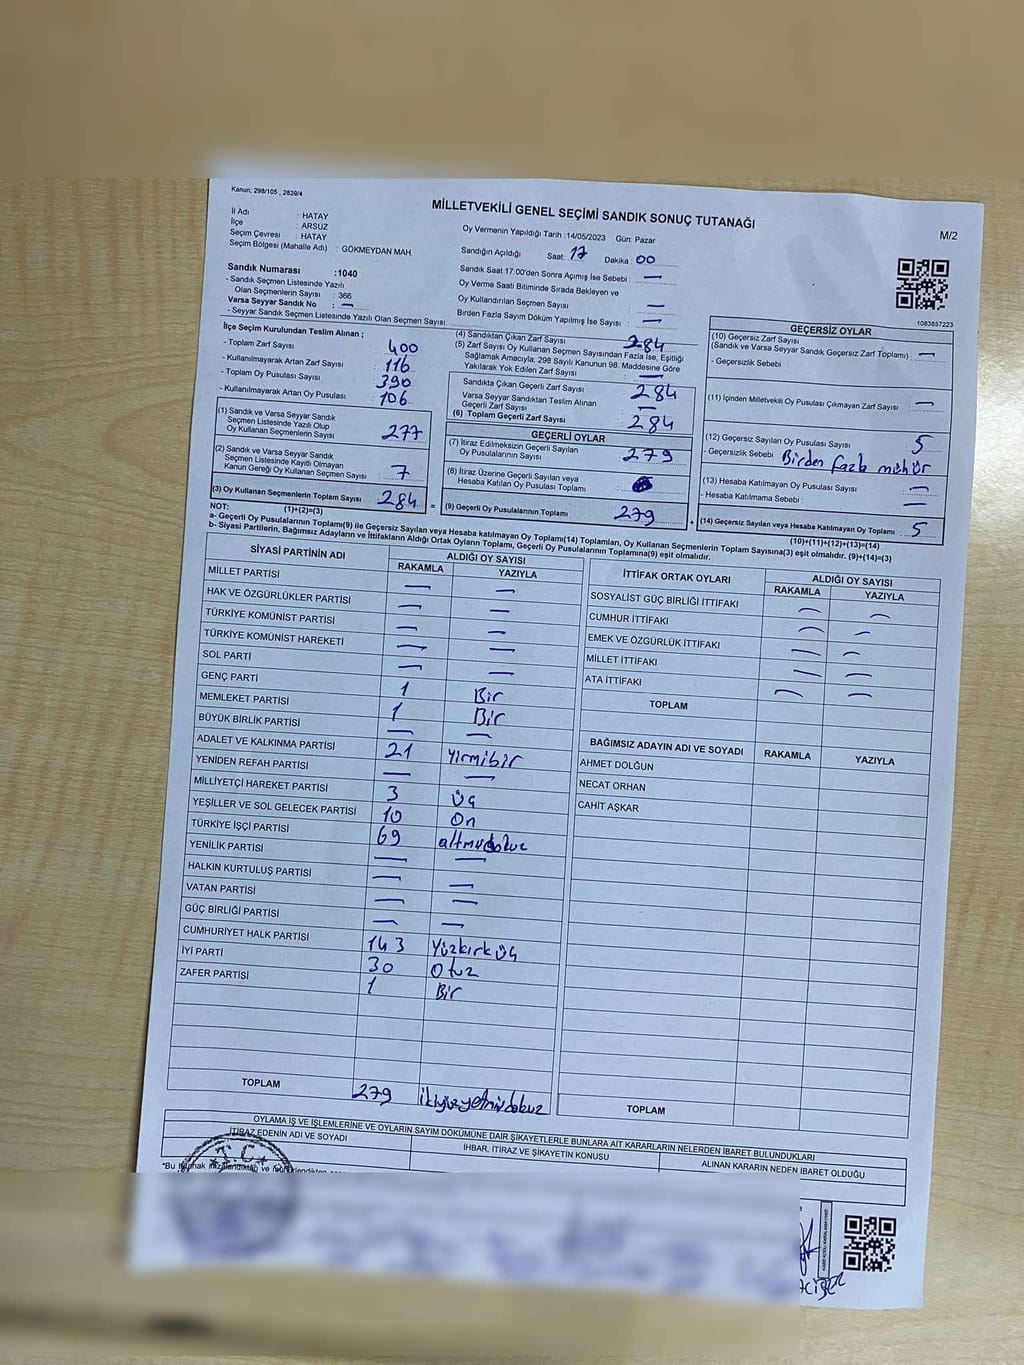 Kanun; 298/105 , 2839/4
MİLLETVEKİLİ GENEL SEÇİMİ SANDIK SONUÇ TUTANAĞI
M/2
İl Adı : HATAY
İlçe : ARSUZ
Seçim Çevresi : HATAY
Seçim Bölgesi (Mahalle Adı) : GÖKMEYDAN MAH.
Oy Vermenin Yapıldığı Tarih :14/05/2023 Gün: Pazar
Sandığın Açıldığı Saat: 17 Dakika 00
Sandık Saat 17:00'den Sonra Açımış İse Sebebi : —
Oy Verme Saati Bitiminde Sırada Bekleyen ve
Oy Kullandırılan Seçmen Sayısı : —
Birden Fazla Sayım Döküm Yapılmış İse Sayısı : —
Sandık Numarası :1040
- Sandık Seçmen Listesinde Yazılı
Olan Seçmenlerin Sayısı : 366
Varsa Seyyar Sandık No : —
- Seyyar Sandık Seçmen Listesinde Yazılı Olan Seçmen Sayısı:
1083857223
İlçe Seçim Kurulundan Teslim Alınan ;
- Toplam Zarf Sayısı : 400
- Kullanılmayarak Artan Zarf Sayısı : 116
- Toplam Oy Pusulası Sayısı : 390
- Kullanılmayarak Artan Oy Pusulası : 106
(1) Sandık ve Varsa Seyyar Sandık
Seçmen Listesinde Yazılı Olup
Oy Kullanan Seçmenlerin Sayısı : 277
(2) Sandık ve Varsa Seyyar Sandık
Seçmen Listesinde Kayıtlı Olmayan
Kanun Gereği Oy Kullanan Seçmen Sayısı : 7
(3) Oy Kullanan Seçmenlerin Toplam Sayısı : 284
(1)+(2)=(3)
(4) Sandıktan Çıkan Zarf Sayısı : 284
(5) Zarf Sayısı Oy Kullanan Seçmen Sayısından Fazla İse, Eşitliği
Sağlamak Amacıyla, 298 Sayılı Kanunun 98. Maddesine Göre
Yakılarak Yok Edilen Zarf Sayısı : —
Sandıkta Çıkan Geçerli Zarf Sayısı : 284
Varsa Seyyar Sandıktan Teslim Alınan
Geçerli Zarf Sayısı : —
(6) Toplam Geçerli Zarf Sayısı : 284
GEÇERLİ OYLAR
(7) İtiraz Edilmeksizin Geçerli Sayılan
Oy Pusulalarının Sayısı : 279
(8) İtiraz Üzerine Geçerli Sayılan veya
Hesaba Katılan Oy Pusulası Toplamı :
= (9) Geçerli Oy Pusulalarının Toplamı : 279 +
GEÇERSİZ OYLAR
(10) Geçersiz Zarf Sayısı
(Sandık ve Varsa Seyyar Sandık Geçersiz Zarf Toplamı) : —
- Geçersizlik Sebebi :
(11) İçinden Milletvekili Oy Pusulası Çıkmayan Zarf Sayısı : —
(12) Geçersiz Sayılan Oy Pusulası Sayısı : 5
- Geçersizlik Sebebi : Birden fazla mühür
(13) Hesaba Katılmayan Oy Pusulası Sayısı : —
- Hesaba Katılmama Sebebi : —
(14) Geçersiz Sayılan veya Hesaba Katılmayan Oy Toplamı : 5
(10)+(11)+(12)+(13)=(14)
NOT:
a- Geçerli Oy Pusulalarının Toplamı(9) ile Geçersiz Sayılan veya Hesaba katılmayan Oy Toplamı(14) Toplamları, Oy Kullanan Seçmenlerin Toplam Sayısına(3) eşit olmalıdır. (9)+(14)=(3)
b- Siyasi Partilerin, Bağımsız Adayların ve İttifakların Aldığı Ortak Oyların Toplamı, Geçerli Oy Pusulalarının Toplamına(9) eşit olmalıdır.
SİYASİ PARTİNİN ADI ALDIĞI OY SAYISI
RAKAMLA YAZIYLA
MİLLET PARTİSİ — —
HAK VE ÖZGÜRLÜKLER PARTİSİ — —
TÜRKİYE KOMÜNİST PARTİSİ — —
TÜRKİYE KOMÜNİST HAREKETİ — —
SOL PARTİ — —
GENÇ PARTİ 1 Bir
MEMLEKET PARTİSİ 1 Bir
BÜYÜK BİRLİK PARTİSİ — —
ADALET VE KALKINMA PARTİSİ 21 Yirmibir
YENİDEN REFAH PARTİSİ — —
MİLLİYETÇİ HAREKET PARTİSİ 3 Üç
YEŞİLLER VE SOL GELECEK PARTİSİ 10 On
TÜRKİYE İŞÇİ PARTİSİ 69
YENİLİK PARTİSİ — —
HALKIN KURTULUŞ PARTİSİ — —
VATAN PARTİSİ — —
GÜÇ BİRLİĞİ PARTİSİ — —
CUMHURİYET HALK PARTİSİ 143 Yüzkırk üç
İYİ PARTİ 30 Otuz
ZAFER PARTİSİ 1 Bir
TOPLAM 279
İTTİFAK ORTAK OYLARI ALDIĞI OY SAYISI
RAKAMLA YAZIYLA
SOSYALİST GÜÇ BİRLİĞİ İTTİFAKI — —
CUMHUR İTTİFAKI — —
EMEK VE ÖZGÜRLÜK İTTİFAKI — —
MİLLET İTTİFAKI — —
ATA İTTİFAKI — —
TOPLAM
BAĞIMSIZ ADAYIN ADI VE SOYADI RAKAMLA YAZIYLA
AHMET DOLĞUN
NECAT ORHAN
CAHİT AŞKAR
TOPLAM
OYLAMA İŞ VE İŞLEMLERİNE VE OYLARIN SAYIM DÖKÜMÜNE DAİR ŞİKAYETLERLE BUNLARA AİT KARARLARIN NELERDEN İBARET BULUNDUKLARI
İTİRAZ EDENİN ADI VE SOYADI
İHBAR, İTİRAZ VE ŞİKAYETİN KONUSU
ALINAN KARARIN NEDEN İBARET OLDUĞU
T.C.